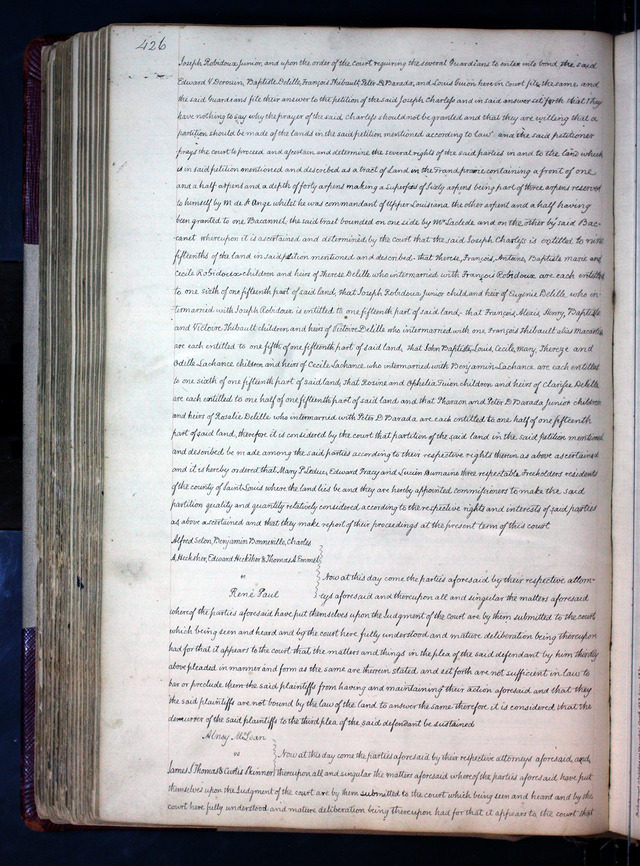 426
Joseph Robidoux Junior, and upon the order of the court requiring the several Guardians to enter into bond the said
Edward V Derouin, Baptiste Delille, François Thibault, Peter D Barada, and Louis Guion here in Court file the same and
the said Guardians file their answer to the petition of the said Joseph Charless and in said answer set forth that they
have nothing to say why the prayer of the said Charless should not be granted and that they are willing that a
partition should be made of the lands in the said petition mentioned according to law and the said petitioner
prays the court to proceed and ascertain and determine the several rights of the said parties in and to the land which
is in said petition mentioned and described as a tract of Land in the Grand prarie containing a front of one
and a half arpens and a depth of forty arpens making a Superfices of Sixty arpens being part of three arpens reserved
to himself by M. de St Ange whilst he was commandant of Upper Louisiana the other arpent and a half having
been granted to one Bacannet, the said tract bounded on one side by Mr Laclede and on the other by said Bac-
canet whereupon it is ascertained and determined by the court that the said Joseph Charless is entitled to nine
fifteenths of the land in said petition mentioned and described that Therese, François, Antoine, Baptiste marie and
Cecile Robidoux children and heirs of Therese Delille who intermarried with François Robidoux are each entitled
to one sixth of one fifteenth part of said land, that Joseph Robidoux Junior child and heir of Eugenie Delille who in-
termarried with Joseph Robidoux is entitled to one fifteenth part of said land that François, Alexis, Henry, Baptiste
and Victoire Thibault children and heirs of Victoire Delille who intermarried with one François Thibault alias Macartie
are each entitled to one fifth of one fifteenth part of said land, that John Baptiste, Louis, Cecile, Mary, Thereze and
Odelle Lachance children and heirs of Cecile Lachance who intermarried with Benjamin Lachance are each entitled
to one sixth of one fifteenth part of said land, that Rosine and Ophelia Guion children and heirs of Clarisse Delille
are each entitled to one half of one fifteenth part of said land and that Pharaon and Peter D Barada Junior children
and heirs of Rosalie Delille who intermarried with Peter D Barada are each entitled to one half of one fifteenth
part of said land, therefore it is considered by the court that partition of the said land in the said petition mentioned
and described be made among the said parties according to their respective rights therein as above ascertained
and it is hereby ordered that Mary P. Leduc, Edward Tracy and Lucien Dumaine three respectable Freeholders residents
of the county of Saint Louis where the land lies be and they are hereby appointed commissioners to make the said
partition quality and quantity relatively considered, according to the respective rights and interests of said parties
as above ascertained and that they make report of their proceedings at the present term of this court
Alfred Seton, Benjamin Bonneville, Charles
A Hecksher, Edward Hecksher & Thomas A Emmet
vs
René Paul
Now at this day come the parties aforesaid by their respective attorn-
eys aforesaid and thereupon all and singular the matters aforesaid
whereof the parties aforesaid have put themselves upon the Judgment of the court are by them submitted to the court
which being seen and heard and by the court here fully understood and mature deliberation being thereupon
had for that it appears to the court that the matters and things in the plea of the said defendant by him thirdly
above pleaded in manner and form as the same are therein stated and set forth are not sufficient in law to
bar or preclude them the said plaintiffs from having and maintaining their action aforesaid and that they
the said plaintiffs are not bound by the law of the land to answer the same therefore it is considered that the
demurrer of the said plaintiffs to the third plea of the said defendant be sustained
Abney McLean
vs
James S Thomas & Curtis Skinner
Now at this day come the parties aforesaid by their respective attorneys aforesaid, and
thereupon all and singular the matters aforesaid whereof the parties aforesaid have put
themselves upon the Judgment of the court are by them submitted to the court which being seen and heard and by the
court here fully understood and mature deliberation being thereupon had for that it appears to the court that